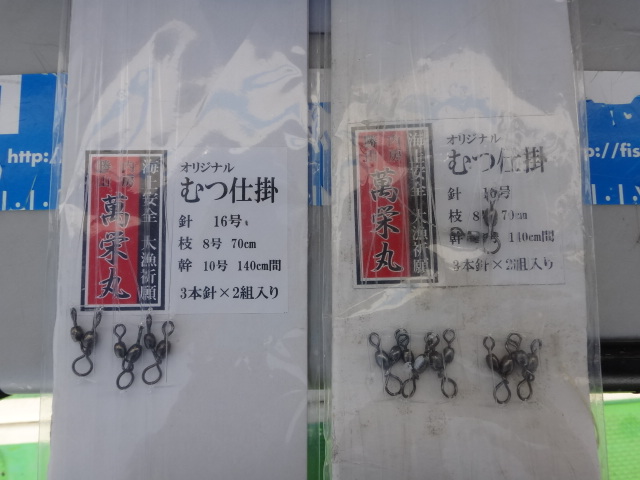 http://
1.1.
海上安全 大漁祈願
萬栄丸
オリジナル
むつ仕掛
針 16号
枝 8号 70cm
幹 10号 140cm間
3本針×2組入り
海上安全 大漁祈願
萬栄丸
オリジナル
むつ仕掛
針 号
枝 8号 70cm
幹 140cm間
3本針×2組入り
http://fis
1.1.